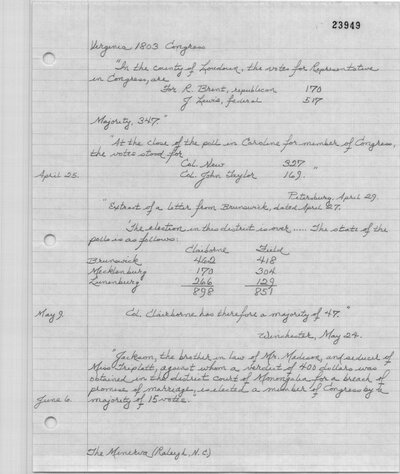 23949
Virginia 1803 Congress
"In the county of Loudoun, the votes for Representative
in Congress, are
For R. Brent, republican 170
J. Lewis, federal 517
Majority, 347."
"At the close of the poll in Caroline for member of Congress,
the votes stood for
Col. New 327
April 25. Col. John Taylor 169."
Petersburg, April 29.
"Extract of a letter from Brunswick, dated April 27.
'The election in this district is over ..... The state of the
polls is as follows:
Claiborne Field
Brunswick 462 418
Mecklenburg 170 304
Lunenburg 266 129
898 851
May 9. Col. Clairborne has therefore a majority of 47.'"
Winchester, May 24.
"Jackson, the brother in law of Mr. Madison, and seducer of
Miss Triplett, against whom a verdict of 400 dollars was
obtained in the district Court of Monongalia for a breach of
promise of marriage, is elected a member of Congress by a
June 6. majority of 15 votes.
The Minerva (Raleigh, N.C.)